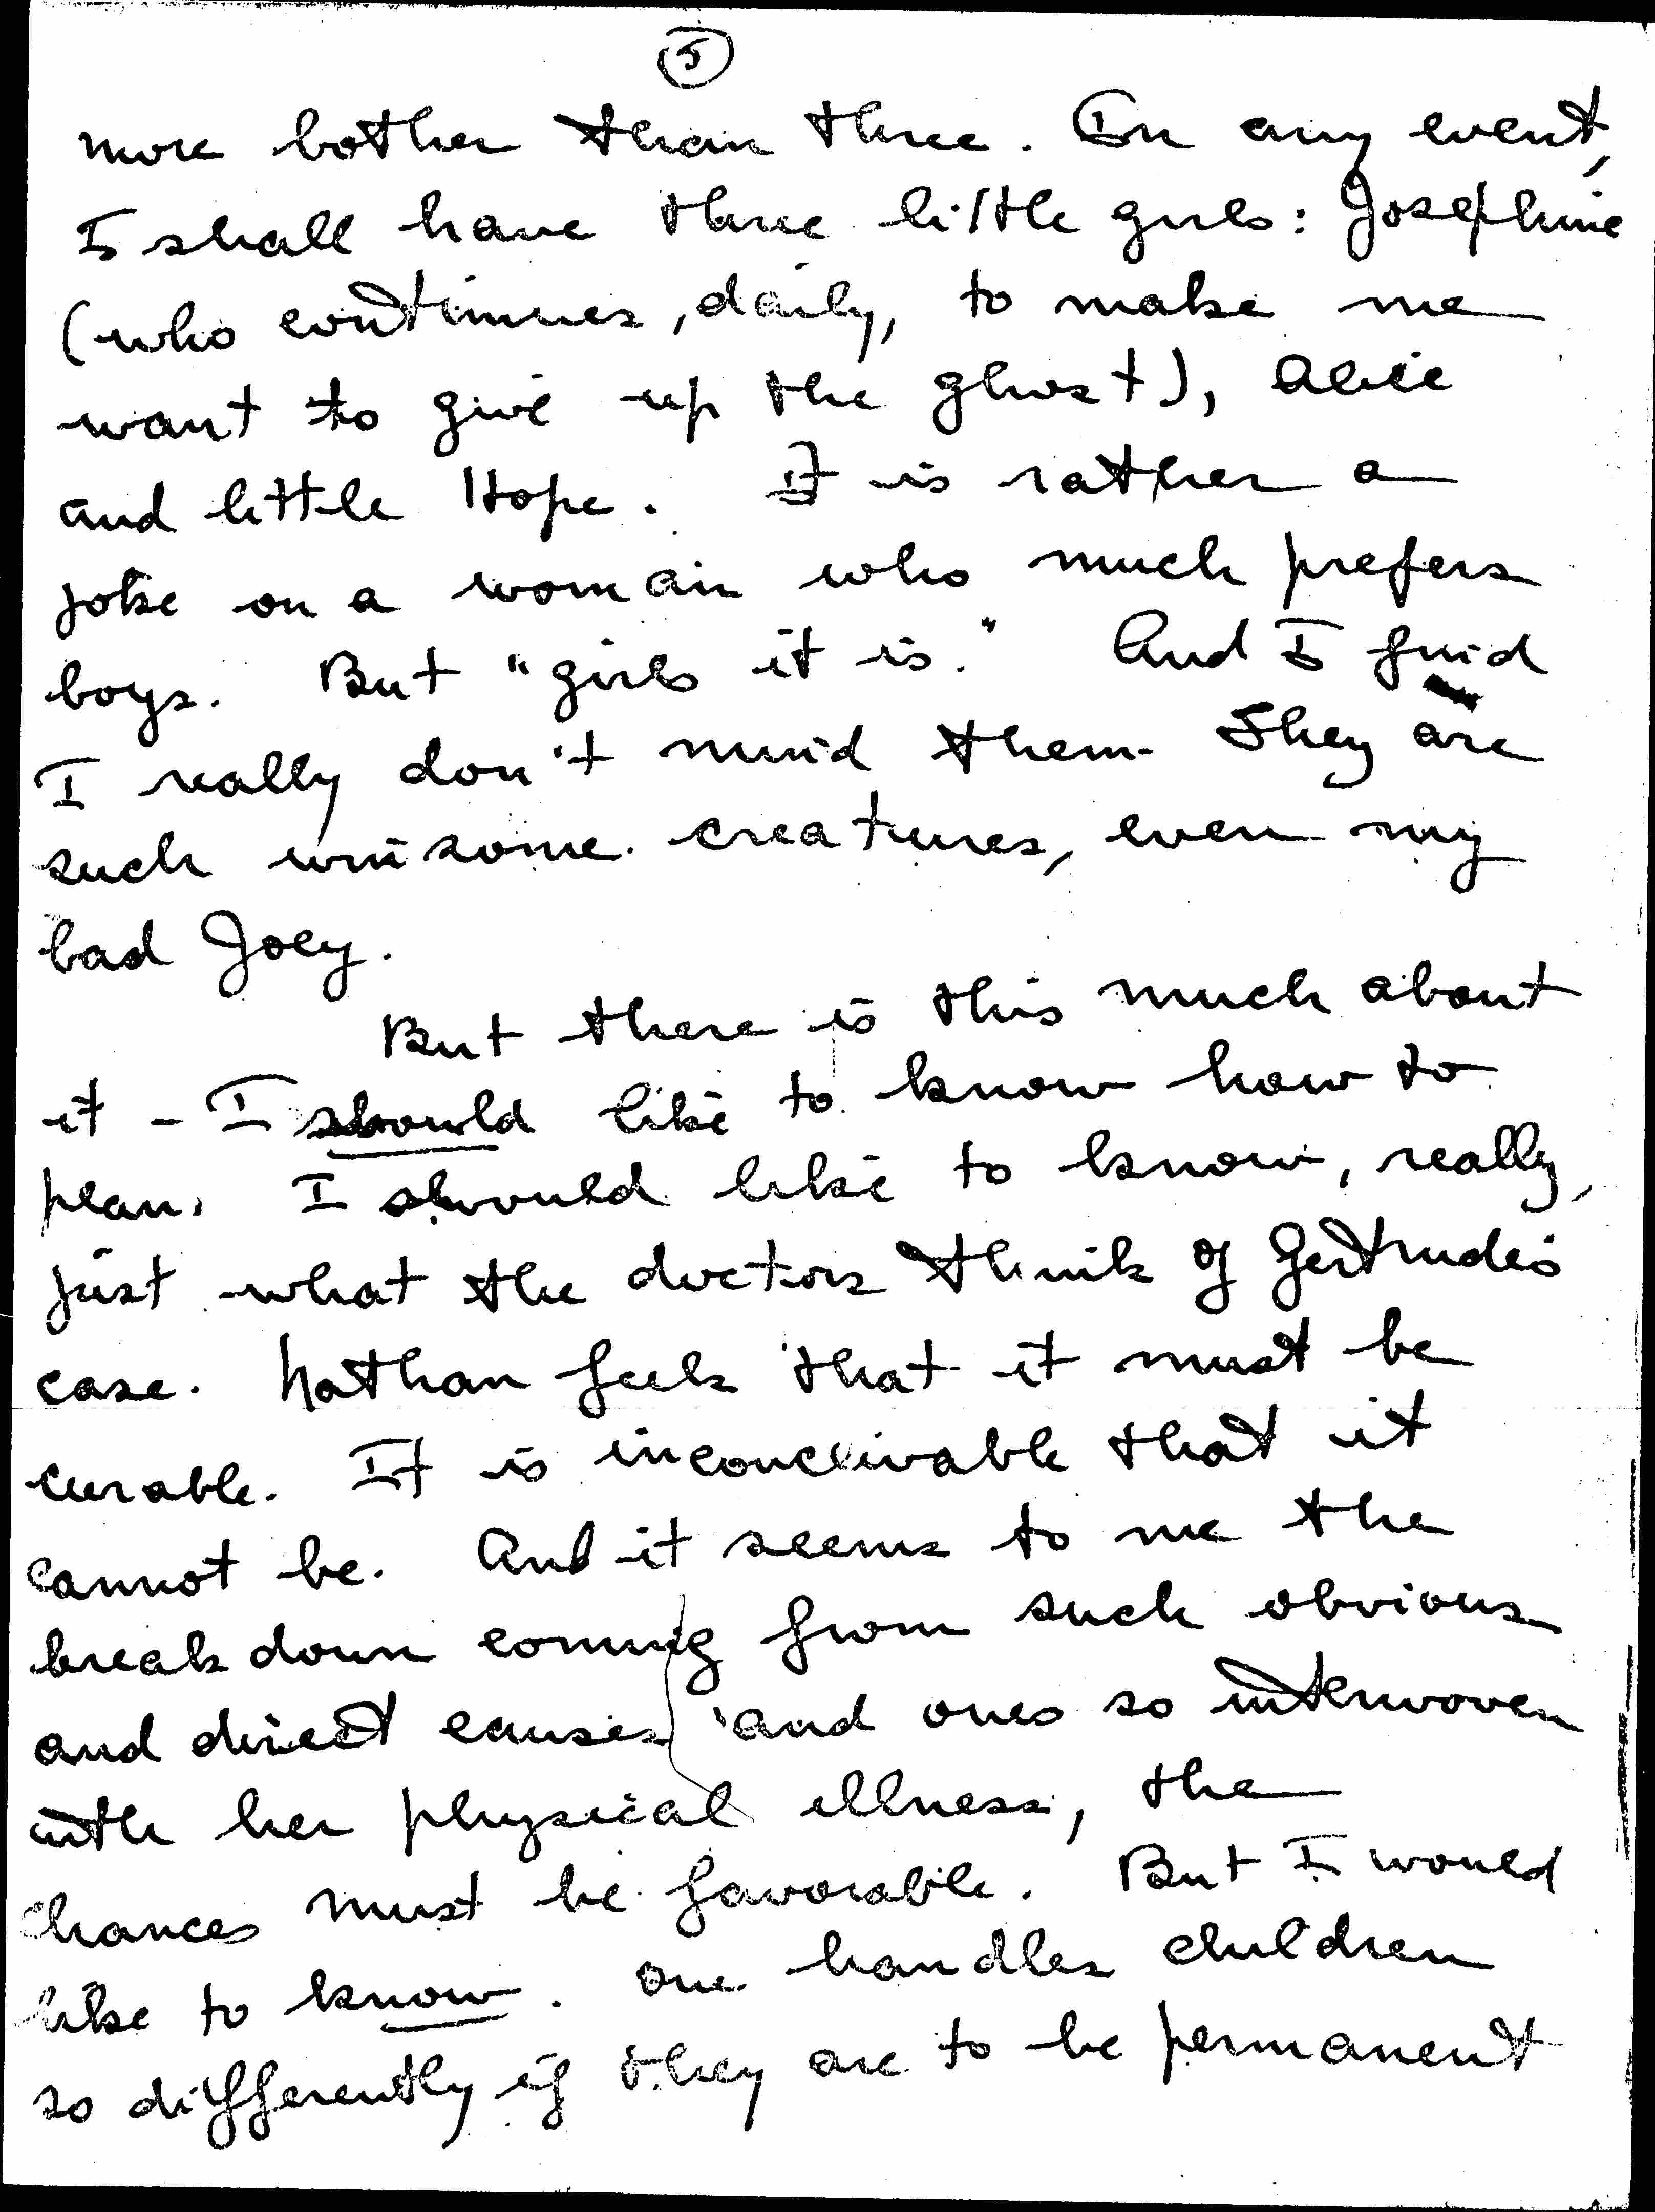 5
more bother than three. In any event,
I shall have three little girls: Josephine
(who continues, daily, to make me
want to give up the ghost), Alice
and little Hope. It is rather a
joke on a woman who much prefers
boys. But "girls it is." And I find
I really don't mind them. They are
such winsome creatures, even my
bad Joey.
But there is this much about
it - I should like to know how to
plan. I should like to know, really,
just what the doctors think of Gertrude's
case. Nathan feels that it must be
curable. It is inconceivable that it
cannot be. And it seems to me the
break down coming from such obvious
and direct causes and ones so interwoven
with her physical illness, the
chances must be favorable. But I would
like to know. One handles children
so differently if they are to be permanent